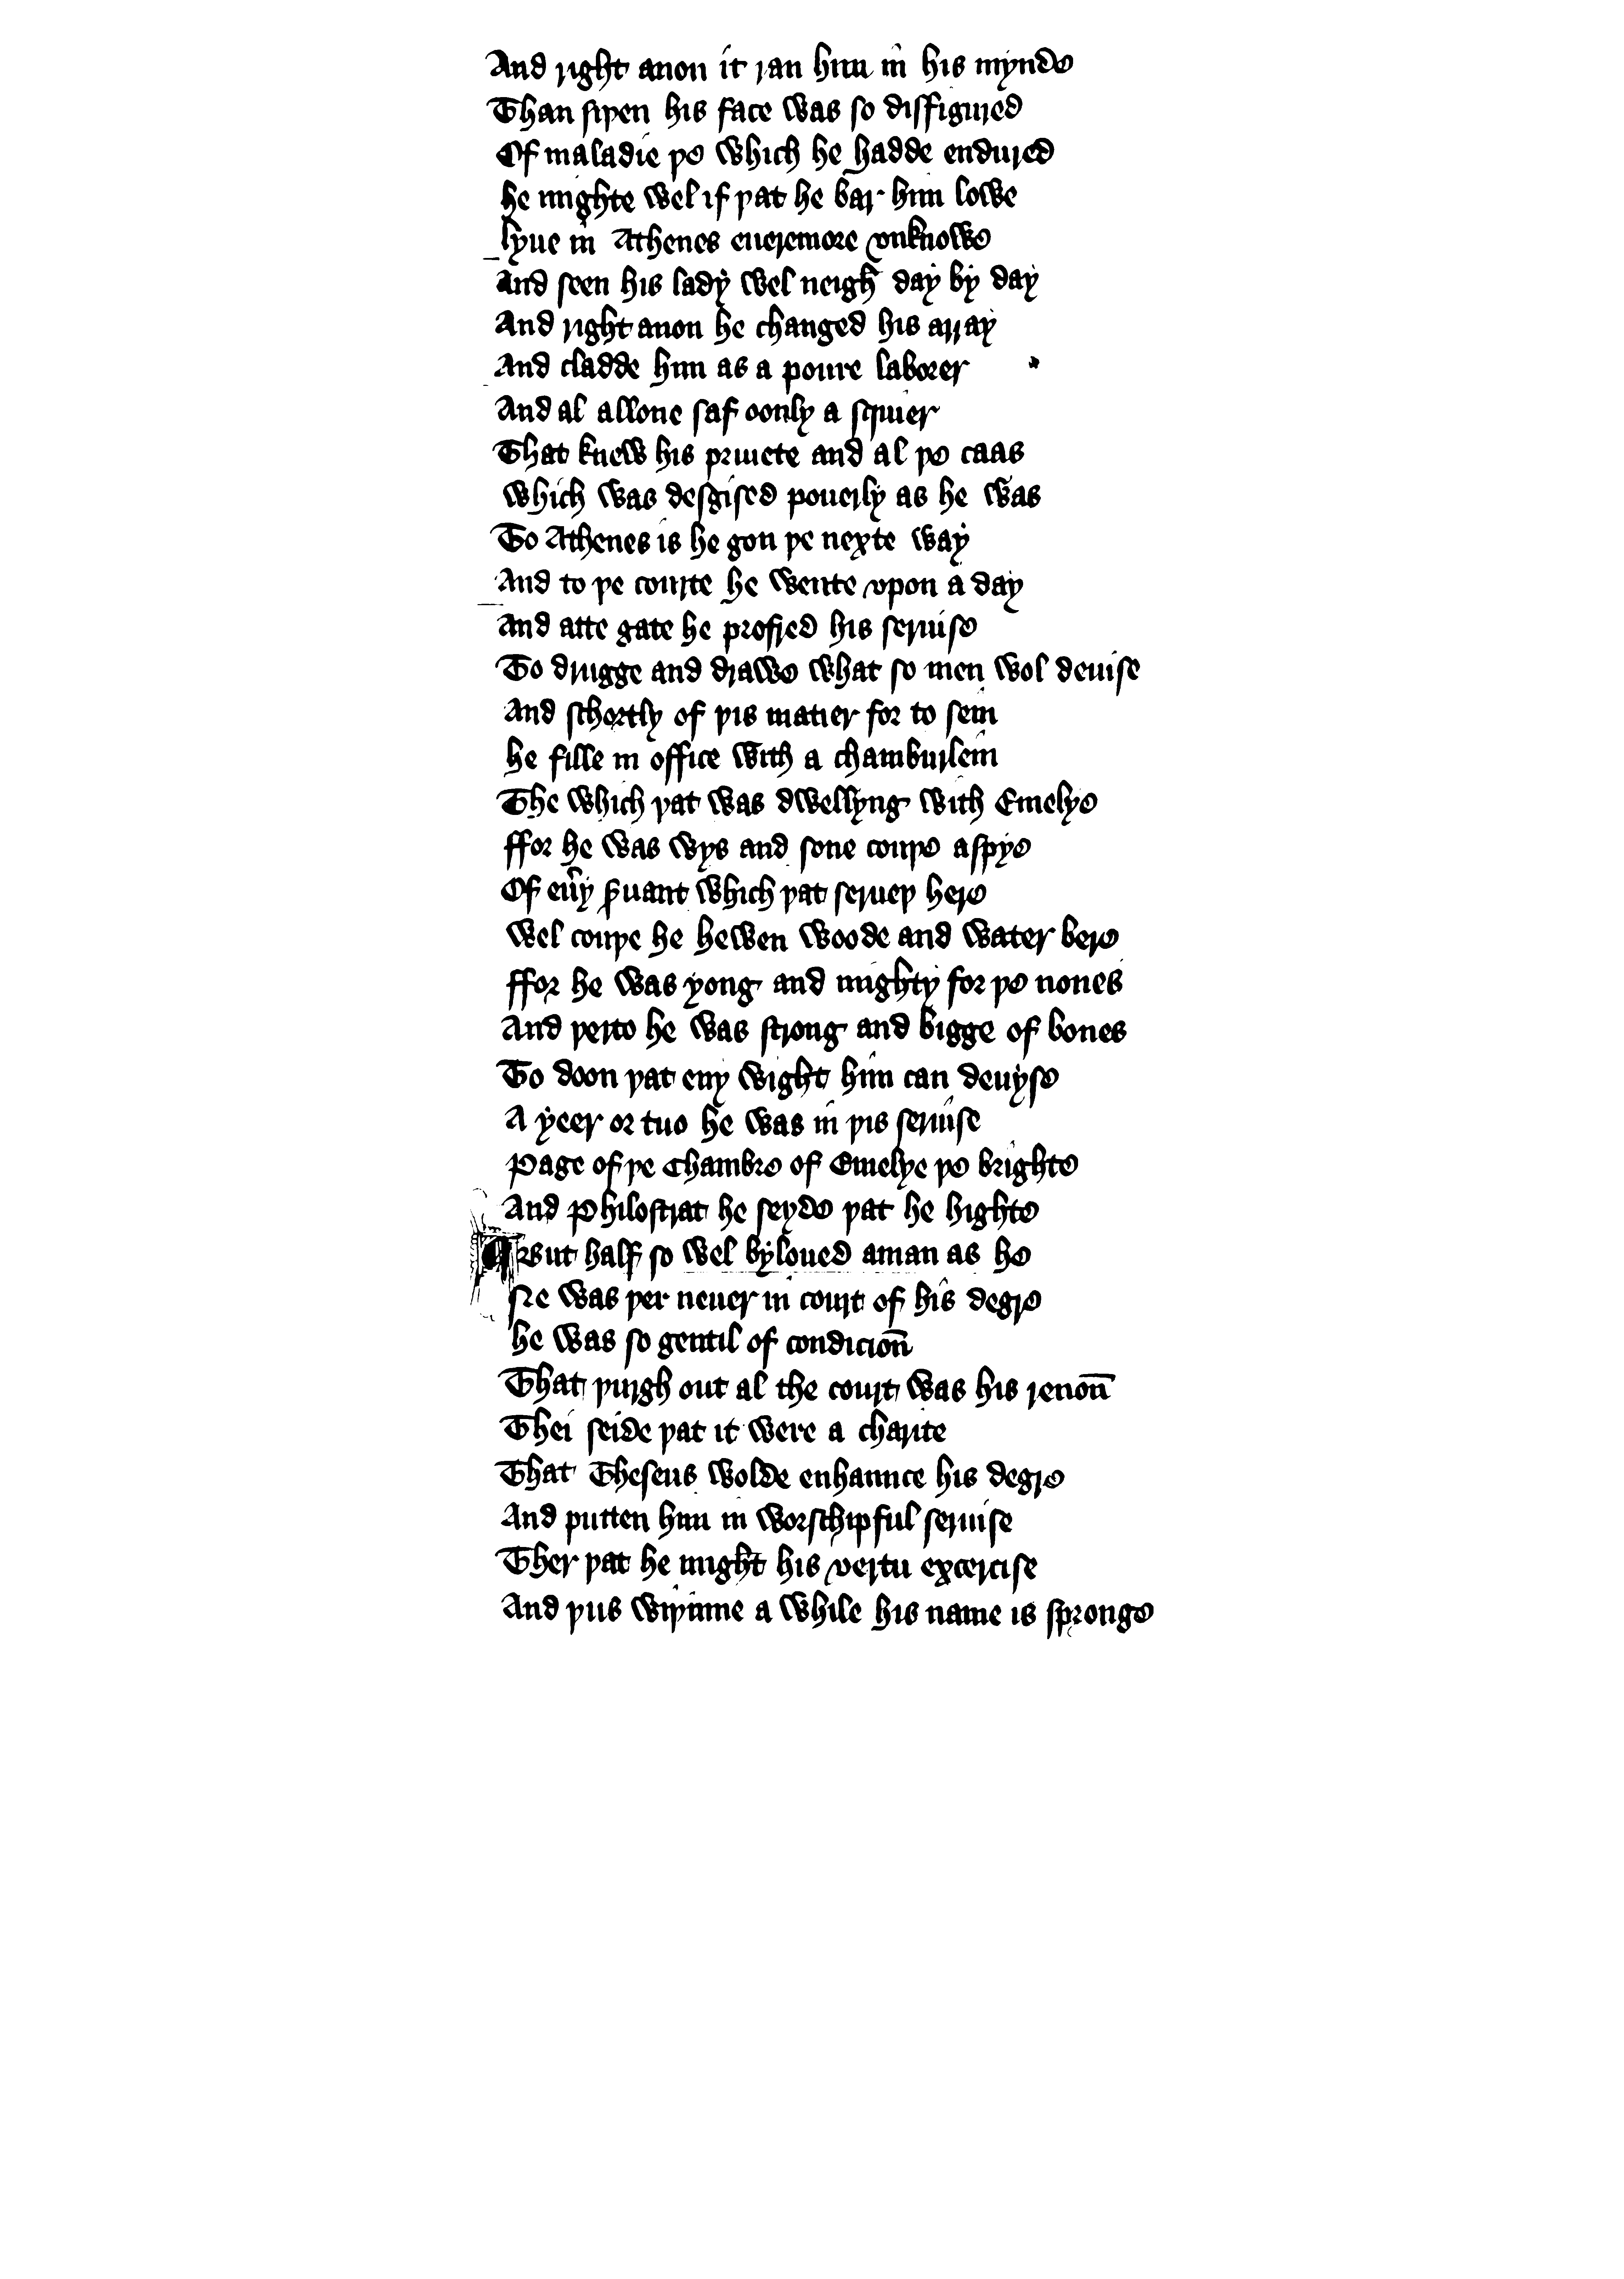 And right anon it ran him in his mynde
Than siþen his face was so disfigured
Of maladie þe which he hadde endured
he mighte wel if þat he bar him lowe
lyue in Athenes eueremore vnknowe
And seen his lady wel neigh day by day
And right anon he changed his array
And cladde him as a poure laborer
And al allone saf oonly a squier
That knew his priuete and al þe caas
which was desgised pouerly as he was
To Athenes is he gon þe nexte way
And to þe courte he wente vpon a day
And atte gate he profred his seruise
To drugge and drawe what so men wol deuise
And schortly of þis matier for to sein
he fille in office with a chamburlein
The which þat was dwellyng with Emelye
ffor he was wys and sone couþe aspye
Of eu̔y ꝑuant which þat serueþ here
wel couþe he hewen woode and water bere
ffor he was yong and mighty for þe nones
And þerto he was strong and bigge of bones
To doon þat eny wight him can deuyse
A yeer or tuo he was in þis seruise
Page of þe Chambre of Emelye þe brighte
And Philostrat he seyde þat he highte
¶ But half so wel byloued aman as he
Ne was þer neuer in court of his degre
he was so gentil of condicion̄
That þurgh out al the court was his renon̄
Thei seide þat it were a charite
That Theseus wolde enhaunce his degre
And putten him in worschipful seruise
Ther þat he might his vertu excercise
And þus wiþinne a while his name is spronge